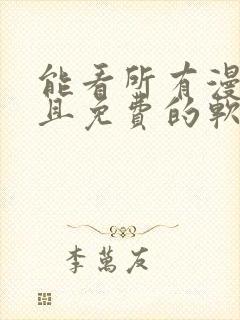 能看所有漫
且免费的軟
李萬友